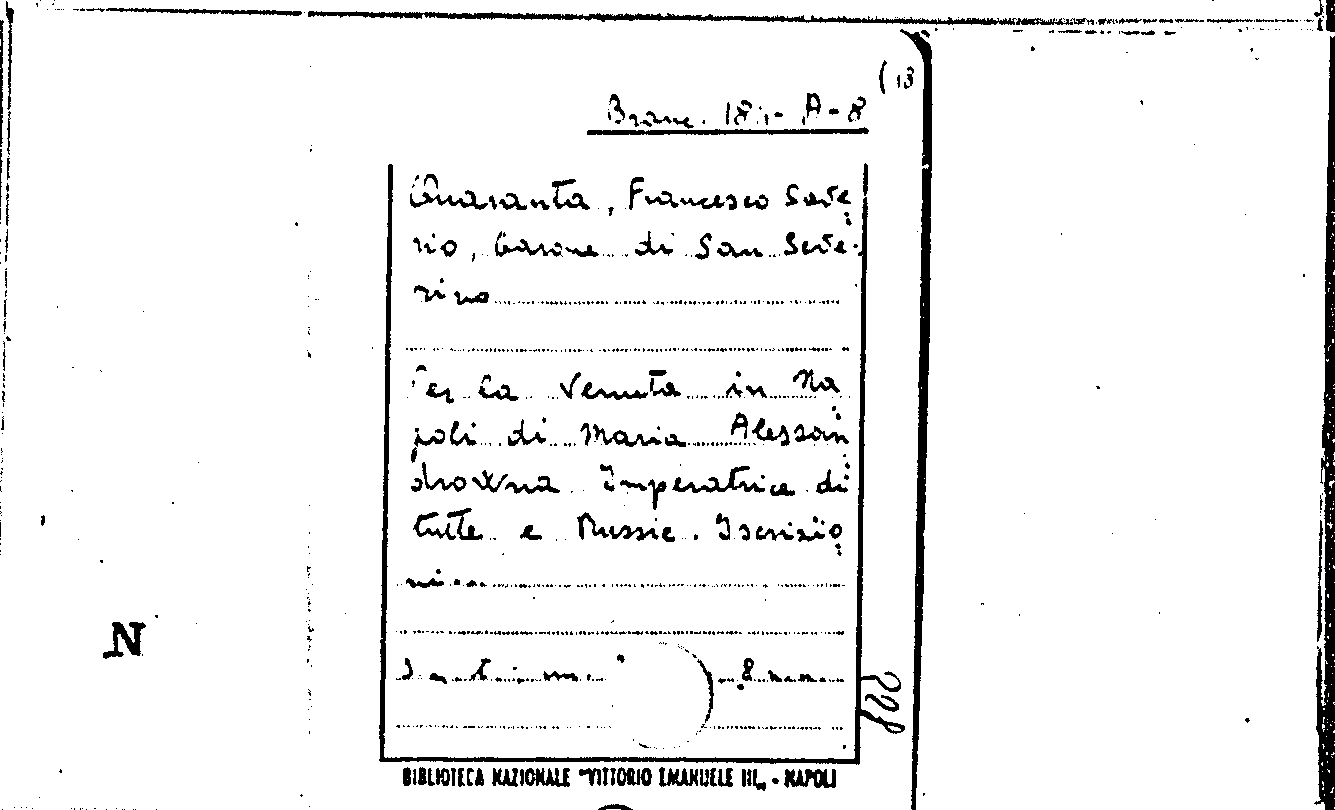 (13
Branc. 18 - A-8
Quaranta, Francesco Save
rio, Barone di San Seve-
rino
Per la venuta in Na
poli di Maria Alessan
drowna Imperatrice di
tutte e Russie. Iscrizio
ni
N
BIBLIOTECA NAZIONALE "VITTORIO EMANUELE III„ - NAPOLI